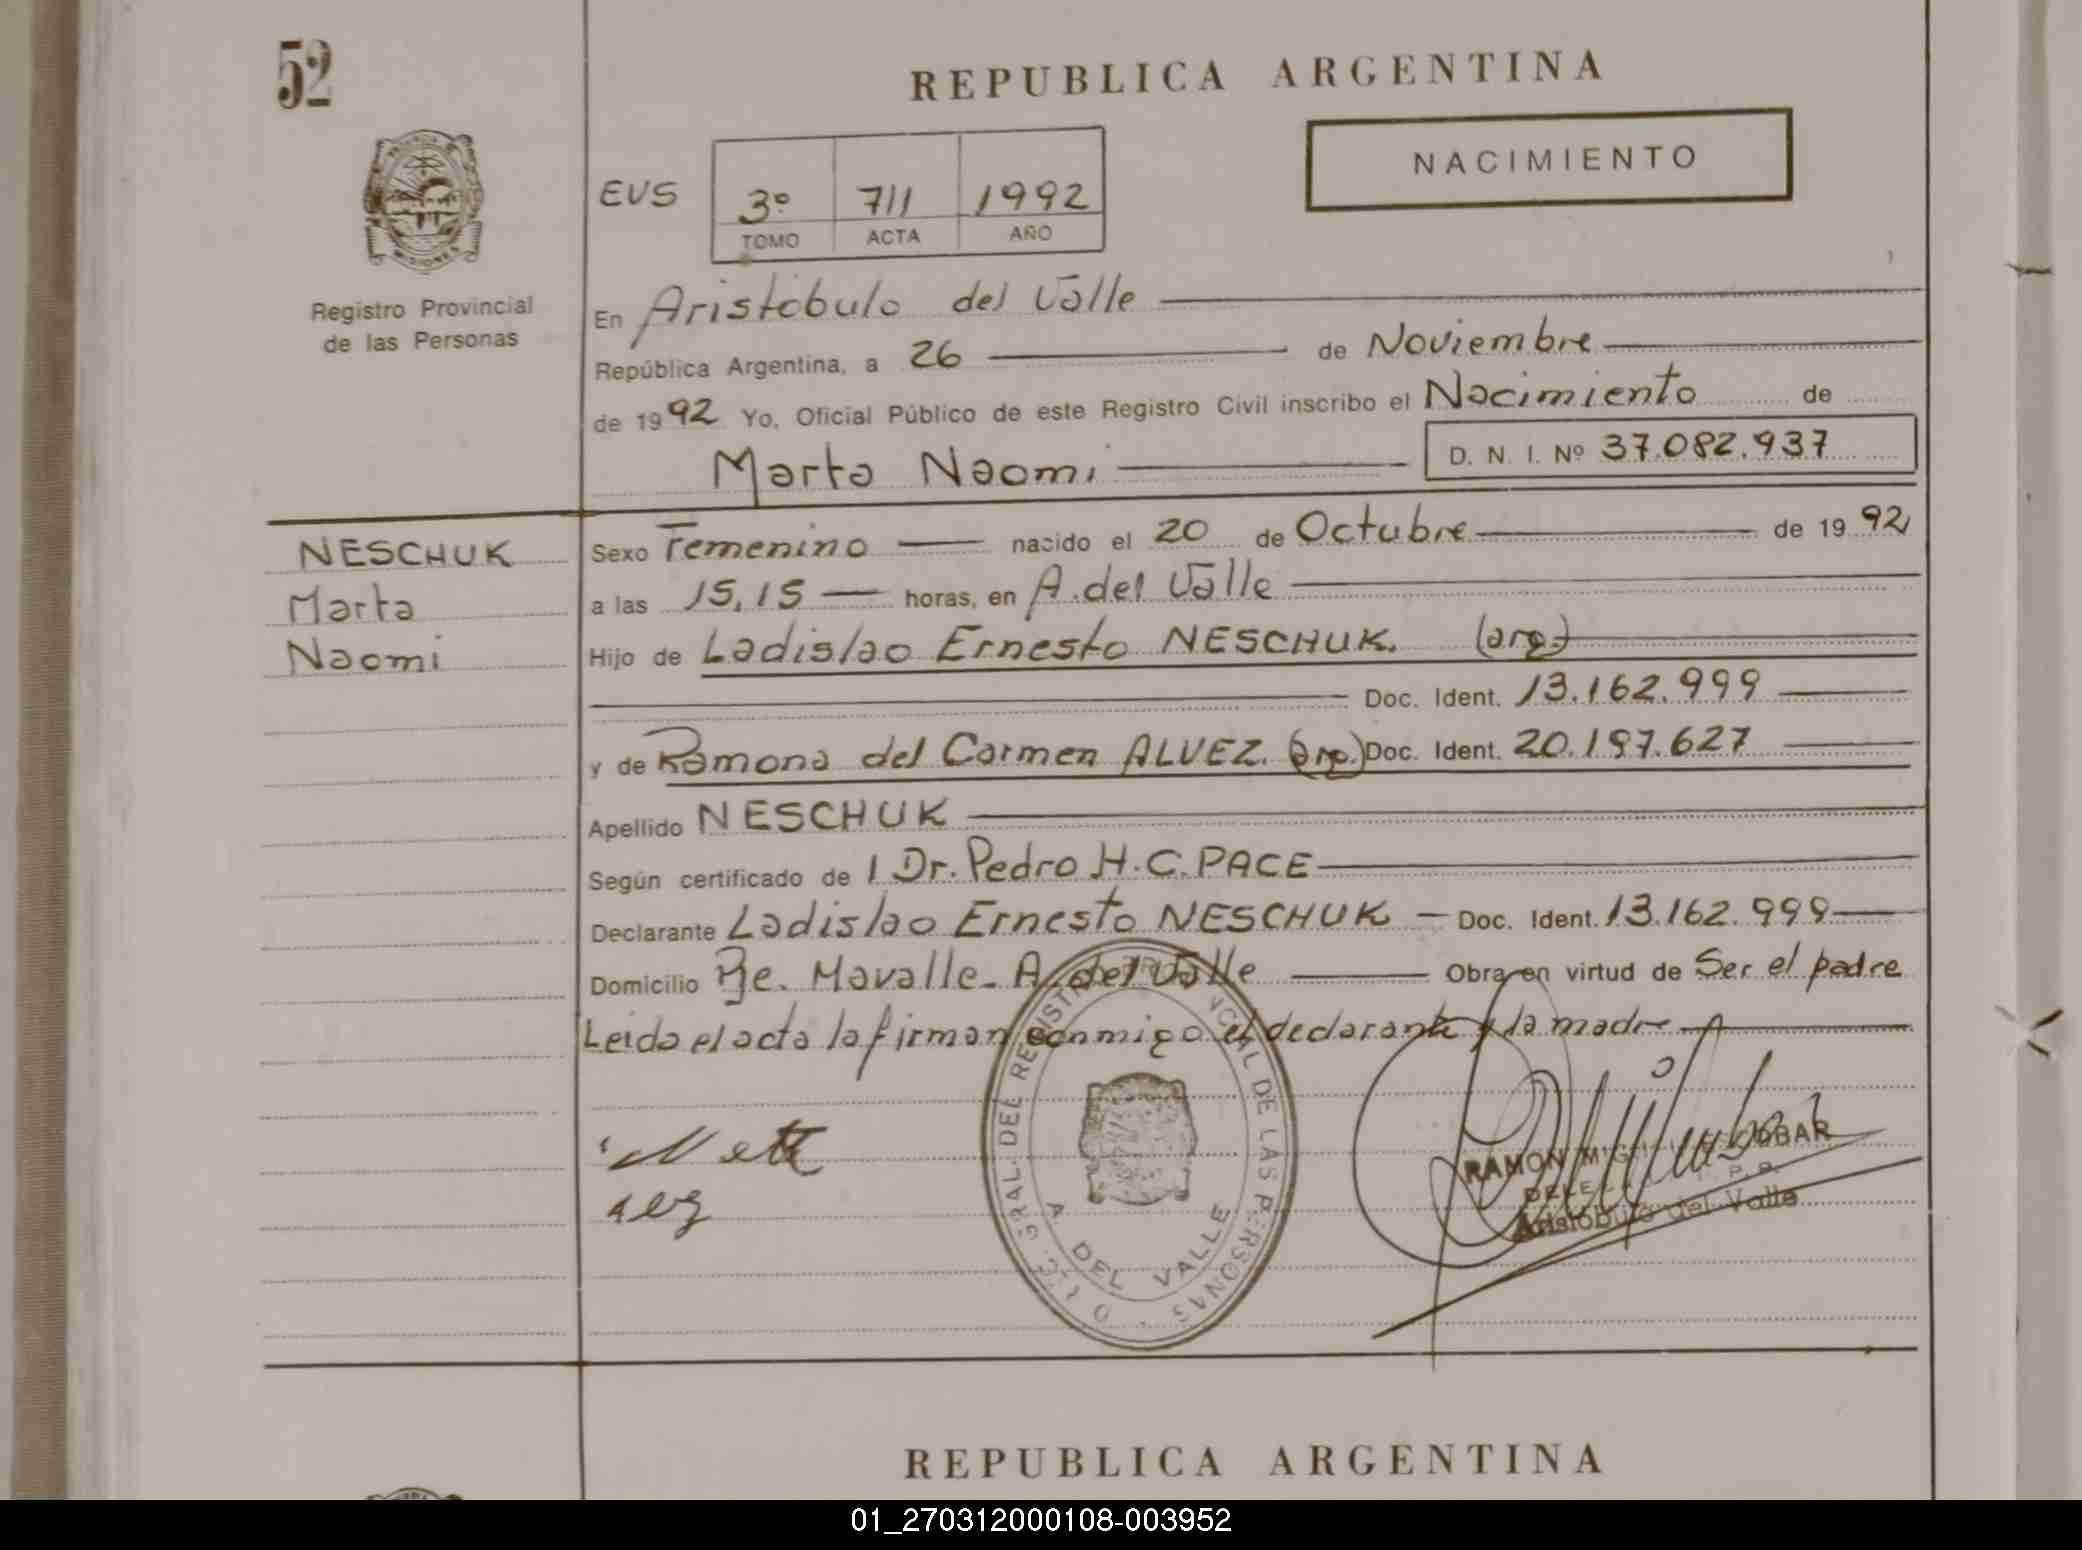 52
REPUBLICA ARGENTINA
NACIMIENTO
EUS 3º 711 1992
TOMO ACTA AÑO
MISIONES
Registro Provincial
de las Personas
En Aristóbulo del Valle
República Argentina, a 26 de Noviembre
de 1992 Yo, Oficial Público de este Registro Civil inscribo el Nacimiento de
Marta Naomi D. N. I. Nº 37.082.937
NESCHUK
Marta
Naomi
Sexo Femenino nacido el 20 de Octubre de 1992
a las 15,15 horas, en A. del Valle
Hijo de Ladislao Ernesto NESCHUK. (arg.)
Doc. Ident. 13.162.999
y de Ramona del Carmen ALVEZ. (arg.) Doc. Ident. 20.197.627
Apellido NESCHUK
Según certificado de 1 Dr. Pedro H. C. PACE
Declarante Ladislao Ernesto NESCHUK - Doc. Ident. 13.162.999
Domicilio Pje. Mavalle - A. del Valle Obra en virtud de Ser el padre
Leida el acta la firman conmigo el declarante y la madre
GRAL. DEL REGISTRO PROVINCIAL DE LAS PERSONAS
A DEL VALLE
RAMON MIGUEL ESCOBAR
Aristóbulo del Valle
REPUBLICA ARGENTINA
01_270312000108-003952